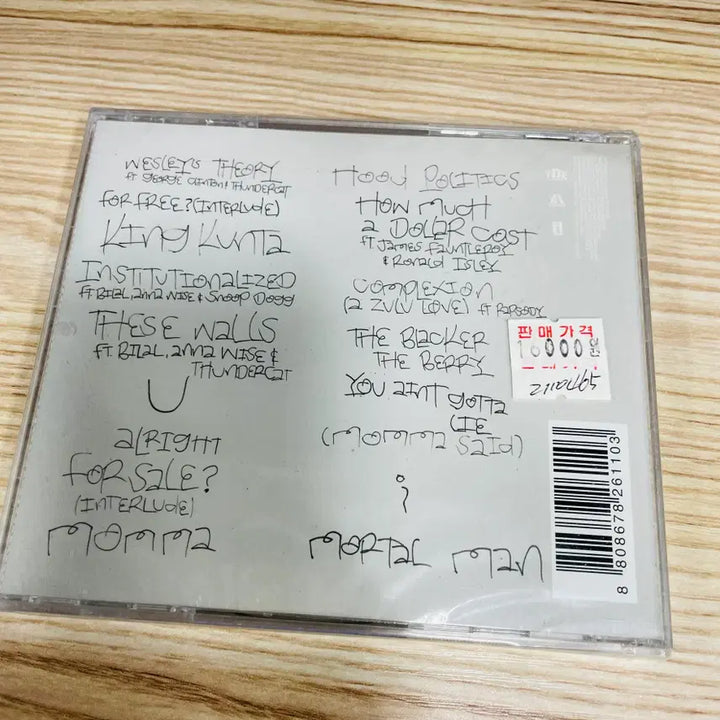 WESLEY'S THEORY
FT GEORGE CLINTON & THUNDERCAT
FOR FREE? (INTERLUDE)
KING KUNTA
INSTITUTIONALIZED
FT BILAL, ANNA WISE & SNOOP DOGG
THESE WALLS
FT. BILAL, ANNA WISE &
THUNDERCAT
U
ALRIGHT
FOR SALE?
(INTERLUDE)
MOMMA
HOOD POLITICS
HOW MUCH
A DOLLAR COST
FT JAMES FAUNTLEROY
& RONALD ISLEY
COMPLEXION
(A ZULU LOVE) FT RAPSODY
THE BLACKER
THE BERRY
YOU AINT GOTTA
LIE
(MOMMA SAID)
i
MORTAL MAN
판매가격
16000원
8 808678 261103